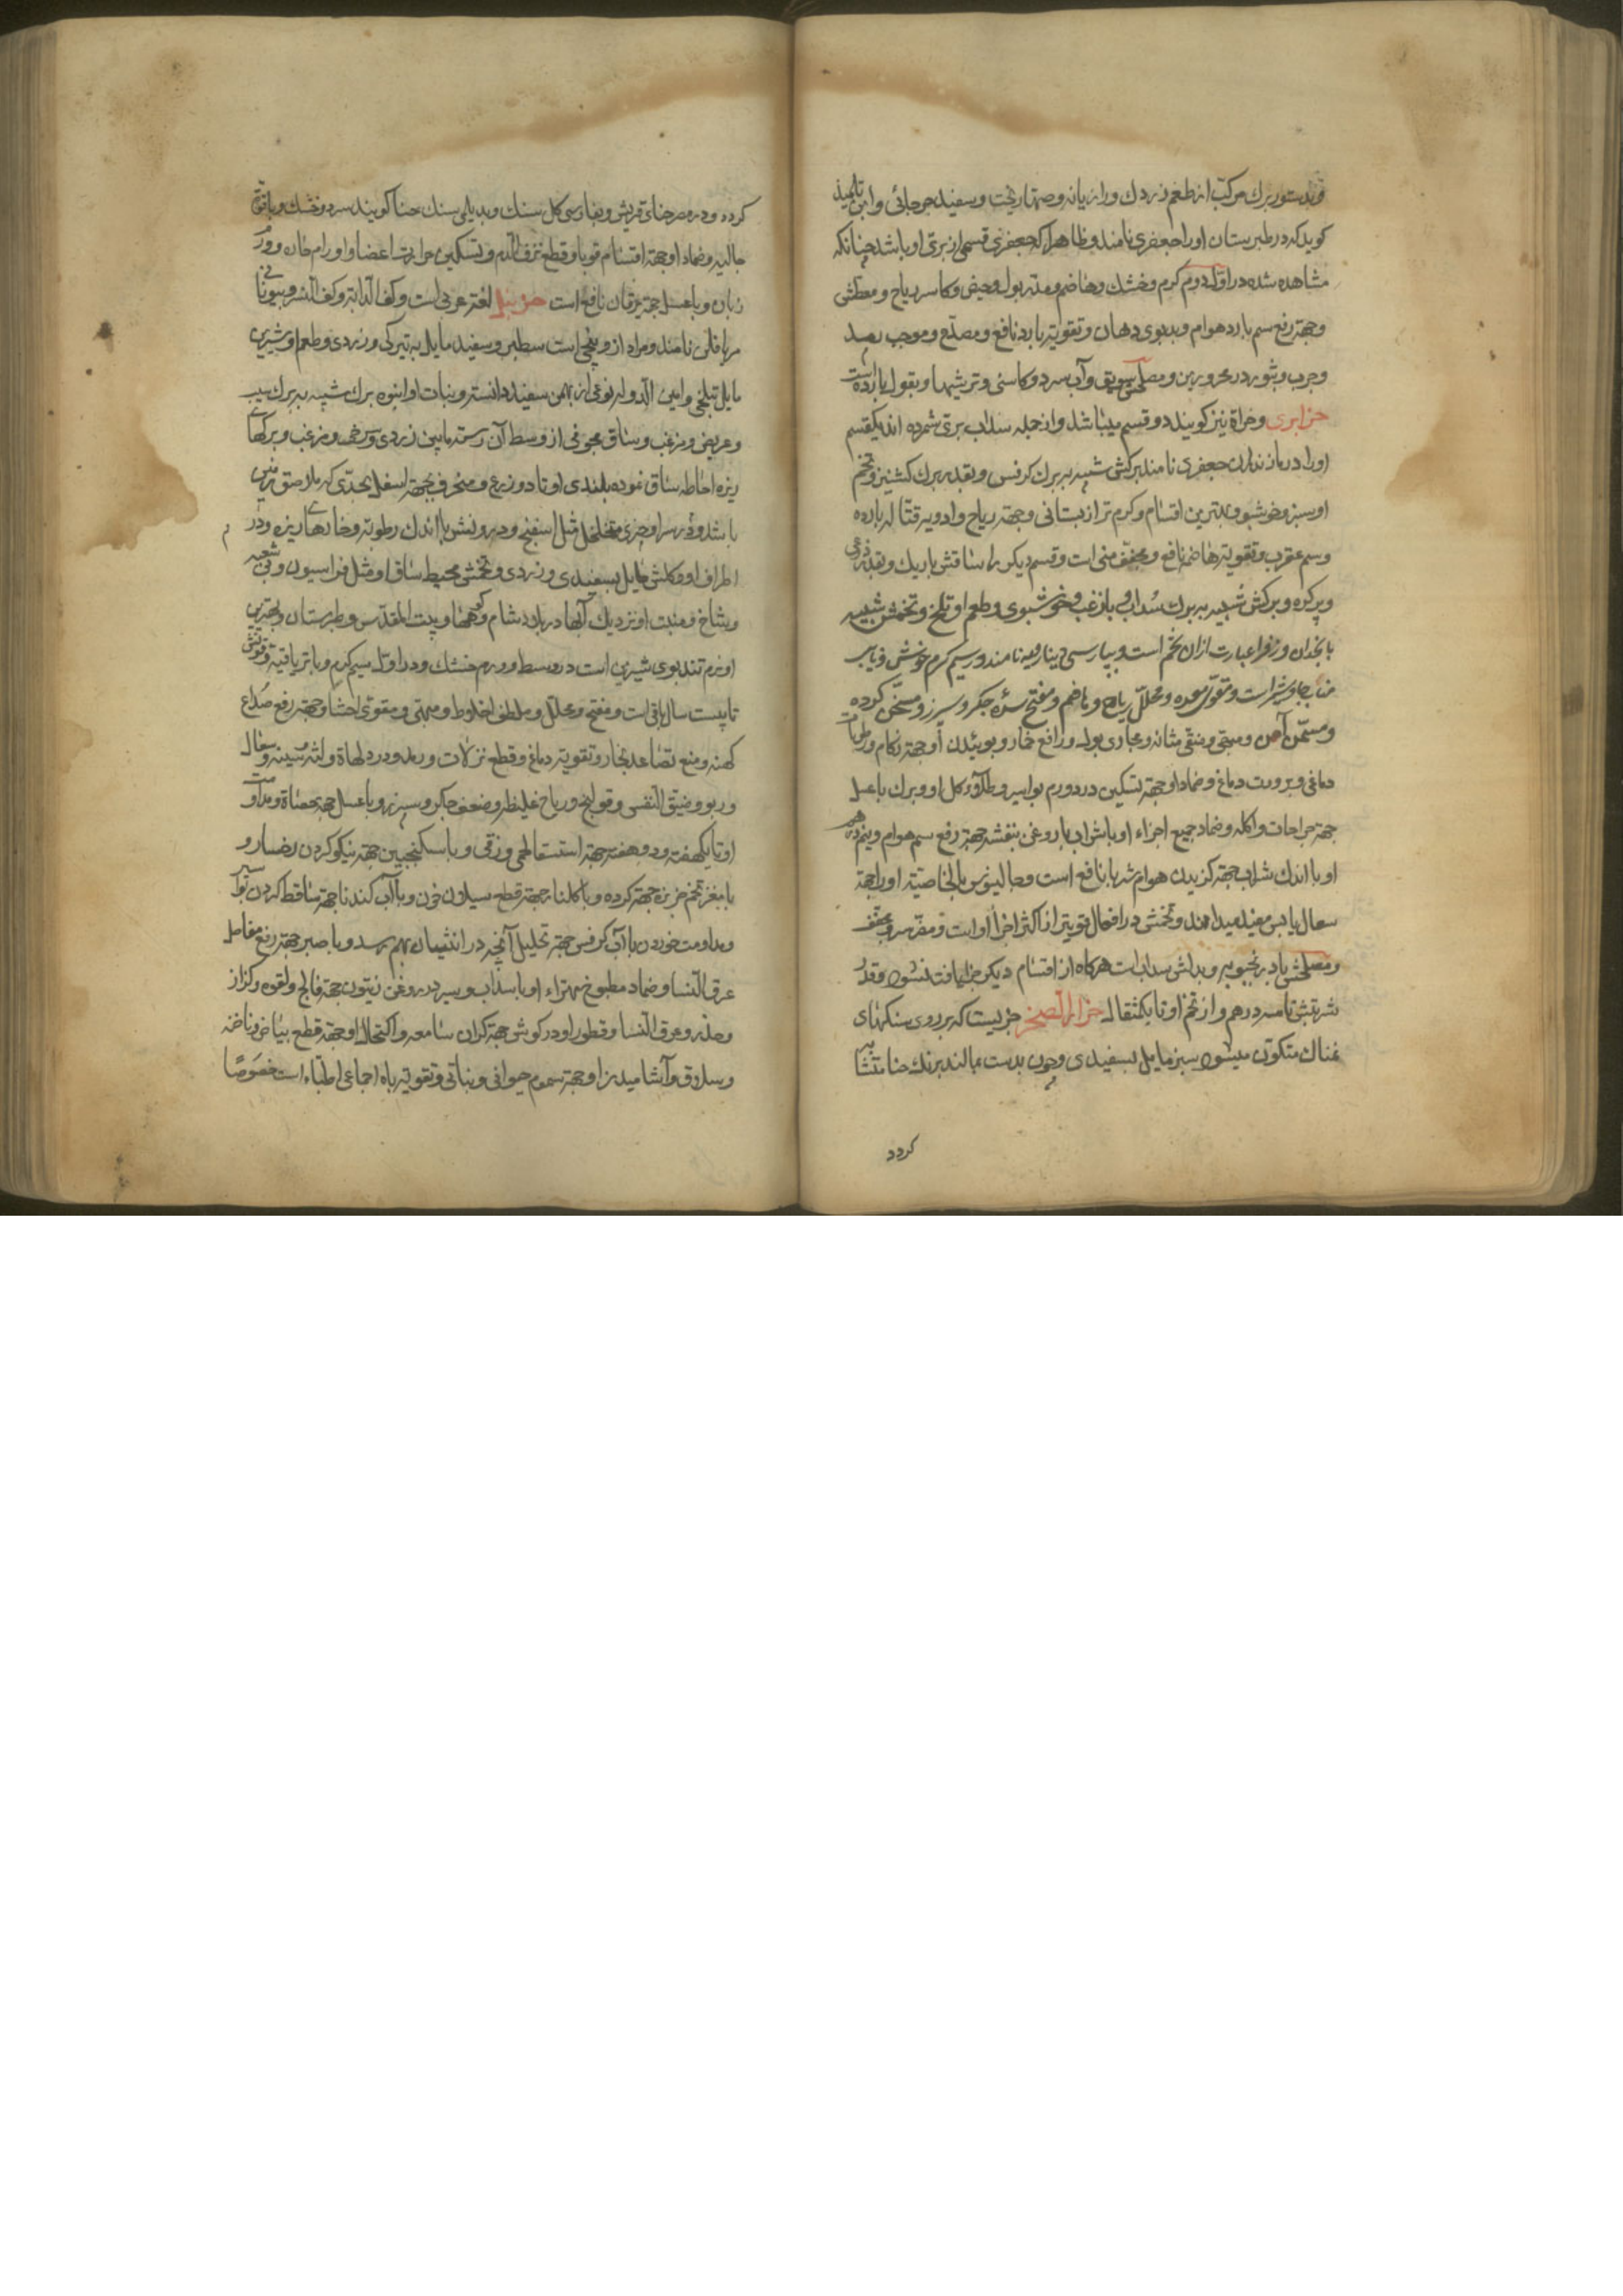 و بدستور برك مركب از طعم زردك و رازيانه و صمها ريخت و سفيد جرجانى و ابن تلميذ
كويد كه در طبرستان او را جعفرى نامند و ظاهرا كه جعفرى قسمى از برى او باشد چنانكه
مشاهده شده در اول دوم كرم و خشك و هاضم و مدر بول و حيض و كاسر رياح و معطش
و جهة رفع سم بارد هوام و بدبوى دهان و تقويه بارد نافع و مصدع و موجب رمد
و جرب و بثور در محرورين و مصلحش سويق و آب سرد و كاسنى و ترشيها و بقول بارده است
حزا برى و حزاة نيز كويند دو قسم ميباشد و از جمله سداب برى شمرده اند يكقسم
او را در مازندران جعفرى نامند بركش شبيه ببرك كرفس و بقدر برك كشنيز و تخم
او سبز و خوشبو و بهترين اقسام و كرم تر از بستانى و جهة رياح و ادويه قتاله بارده
و سم عقرب و تقوية هاضمه نافع و مجفف منى است و قسم ديكر را ساقش باريك و بقدر ذرعى
و پر كره و بركش شبيه ببرك سداب و با زغب و خوشبوى و طعم او تلخ و تخمش شبيه
بانجدان و زوفرا عبارت از ان تخم است و بپارسى دينارويه نامند در سيم كرم و خشك و نايب
مناب جاوشير است و مقوى معده و محلل رياح و هاضم و مفتح سده جكر و سپرز و مسخن كرده
و مسمن آن و مبهى و منقى مثانه و مجارى بول و رافع خمار و بوئيدن او جهة زكام و رطوبات
دماغى و برودت دماغ و ضماد او جهة تسكين درد ورم بواسير و طلاء كل او و برك با عسل
جهة جراحات و اكله و ضماد جميع اجزاء او با شراب يا روغن بنفشه جهة رفع سم هوام و نيمدرهم
او با اندك شراب جهة كزيدن هوام شربا نافع است و جالينوس بالخاصية او را جهة
سعال يابس مفيد ميداند و تخمش در افعال قويتر از اكثر اجزاء او است و مضر سر و مجفف
و مصلحش بادرنجبويه و بدلش سداب است هركاه از اقسام ديكر حزا يافت نشود و قدر
شربتش تا سه درهم و از تخم او تا يكمثقال حزاز الصخر چيزيست كه بر روى سنكهاى
نمناك متكون ميشود سبز مايل بسفيدى و چون بدست بمالند برنك حنا متشابه
كردد
كردد و در مصر حناى قريش و بفارسى كل سنك و بديلمى سنك حنا كويند سرد و خشك و با قوة
جاليه و ضماد او جهة اقسام قوبا و قطع نزف الدم و تسكين حرارت اعضا و اورام حاره و ورم
زبان و با عسل جهة يرقان نافع است حزنبل لغة عربى است و كف الدابه و كف النسر و بيونانى
مريافلن نامند و مراد از و بيخى است سطبر و سفيد مايل به تيركى و زردى و طعم او شيرين
مايل بتلخى و امين الدوله نوعى از بهمن سفيد دانسته و نبات او انبوه برك شبيه ببرك سيب
و عريض و مزغب و ساق مجوفى از وسط آن رسته مابين زردى و سرخى و مزغب و بركهاى
ريزه احاطه ساق نموده بلندى او تا دو زرع و منحرف بجهة اسفل بحدى كه ملاصق زمين
باشد و در سر او چيزى متخلخل مثل اسفنج و درونش با اندك رطوبة و خارهاى ريزه و در
اطراف او و كلش مايل بسفيدى و زردى و تخمش محيط ساق او مثل فراسيون و بى شعبه
و شاخ و منبت او نزديك آبها در بلاد شام و كوهها و بيت المقدس و طبرستان و بهترين
او نرم تندبوى شيرين است در وسط دوم خشك و در اول سيم كرم و با ترياقية و قوتش
تا بيست سال باقى است و مفتح و محلل و ملطف اخلاط و مبهى و مقوى احشا و جهة رفع صداع
كهنه و منع تصاعد بخار و تقوية دماغ و قطع نزلات و رمد و درد لهاة و لثه و سينه و سعال
و ربو و ضيق النفس و قولنج و رياح غليظه و ضعف جكر و سپرز و با عسل جهة حصاة و مداومت
او تا يكهفته و دو هفته جهة استسقا لحمى و زقى و با سكنجبين جهة نيكو كردن رخسار و
با مغز تخم خربزه جهة كرده و با كلنار جهة قطع سيلان خون و با آب كندنا جهة ساقط كردن بواسير
و مداومت خوردن با آب كرفس جهة تحليل آنچه در انثيان بهم رسد و با صبر جهة رفع مفاصل
عرق النسا و ضماد مطبوخ مهراء او با سداب و سير در روغن زيتون جهة فالج و لقوه و كزاز
و خدر و عرق النسا و قطور او در كوش جهة كران سامعه و اكتحال او جهة قطع بياض و ناخنه
و سلاق و آشاميدن او جهة سموم حيوانى و نباتى و تقوية باه اجماعى اطباء است خصوصًا